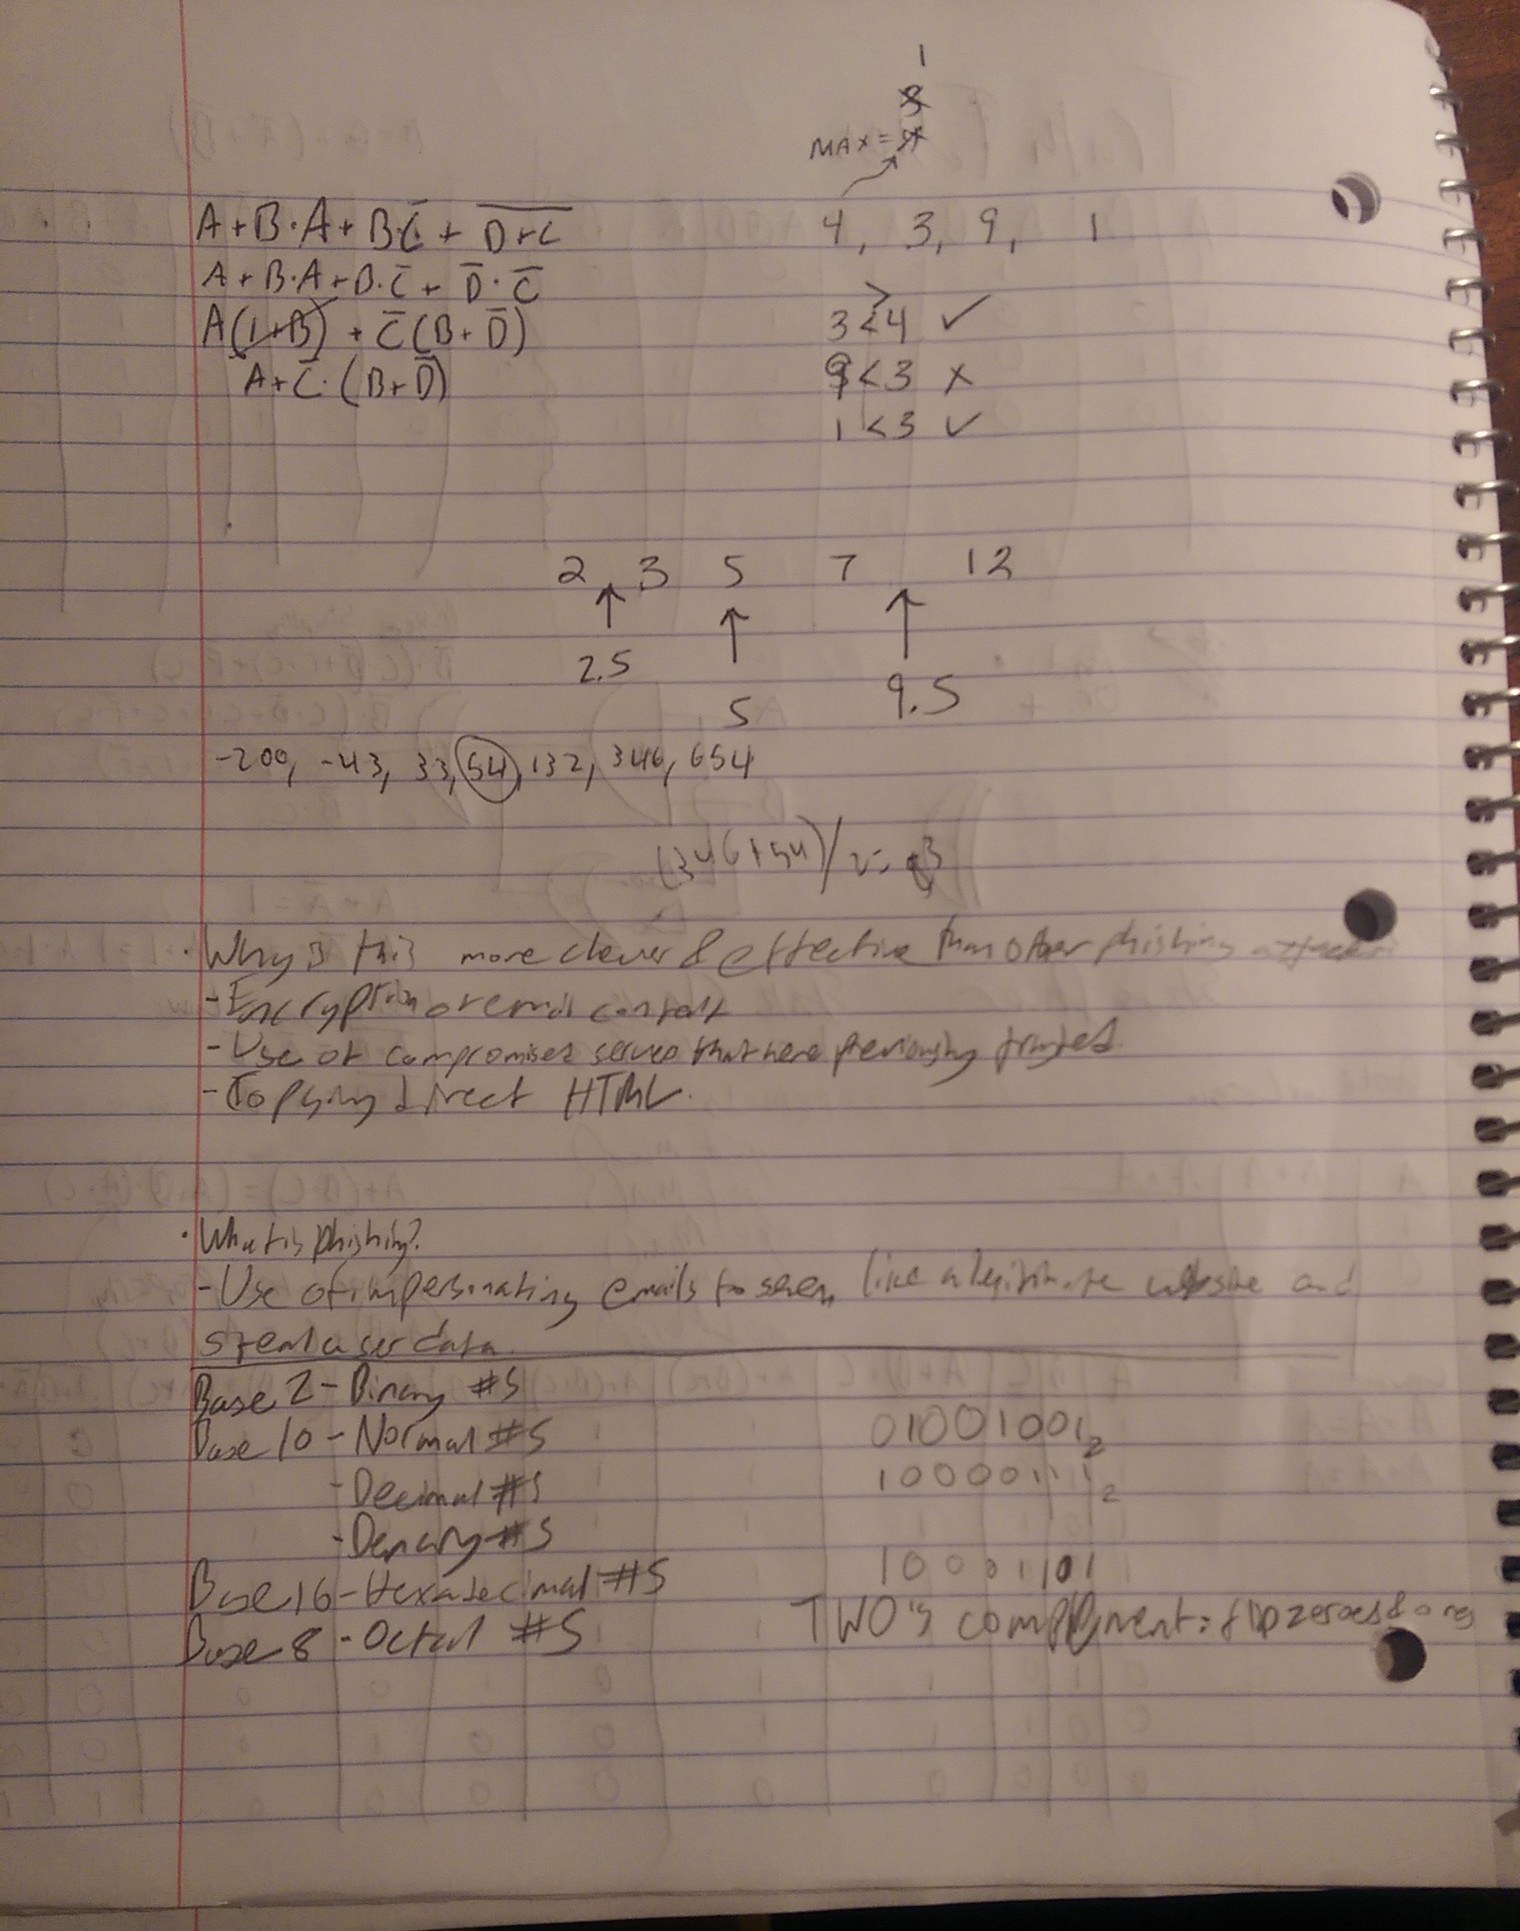 1
3
MAX = 4
A+B·A+B·C̅ + \overline{D+C}
4, 3, 9, 1
A+B·A+B·C̅ + D̅·C̅
>
A(1+B) + C̅(B+D̅)
3<4 ✓
A+C̅·(B+D̅)
9<3 ✗
1<3 ✓
2 3 5 7 12
↑ ↑ ↑
2.5
5
9.5
-200, -43, 33, 54, 132, 346, 654
(346+54)/2=
· Why is this more clever & effective than other phishing attacks
- Encryption of email content
- Use of compromised servers that were previously trusted
- Copying direct HTML.
· What is phishing?
- Use of impersonating emails to seem like a legitimate website and
steal user data.
Base 2 - Binary #S
Base 10 - Normal #S
01001001₂
- Decimal #S
10000111₂
- Denary #S
Base 16 - Hexadecimal #S
10001101
Base 8 - Octal #S
TWO's complement: flip zeroes & ones